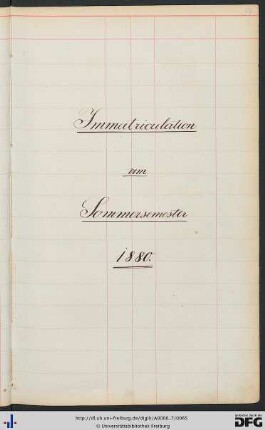 Immatriculation
im
Sommersemester
1880.
http://dl.ub.uni-freiburg.de/diglit/a0066_7/0065
© Universitätsbibliothek Freiburg
DFG